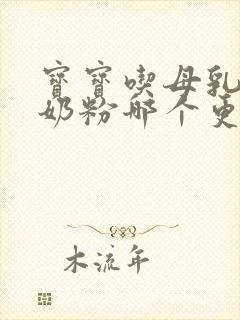 寶寶喫母乳
奶粉哪个更
木流年